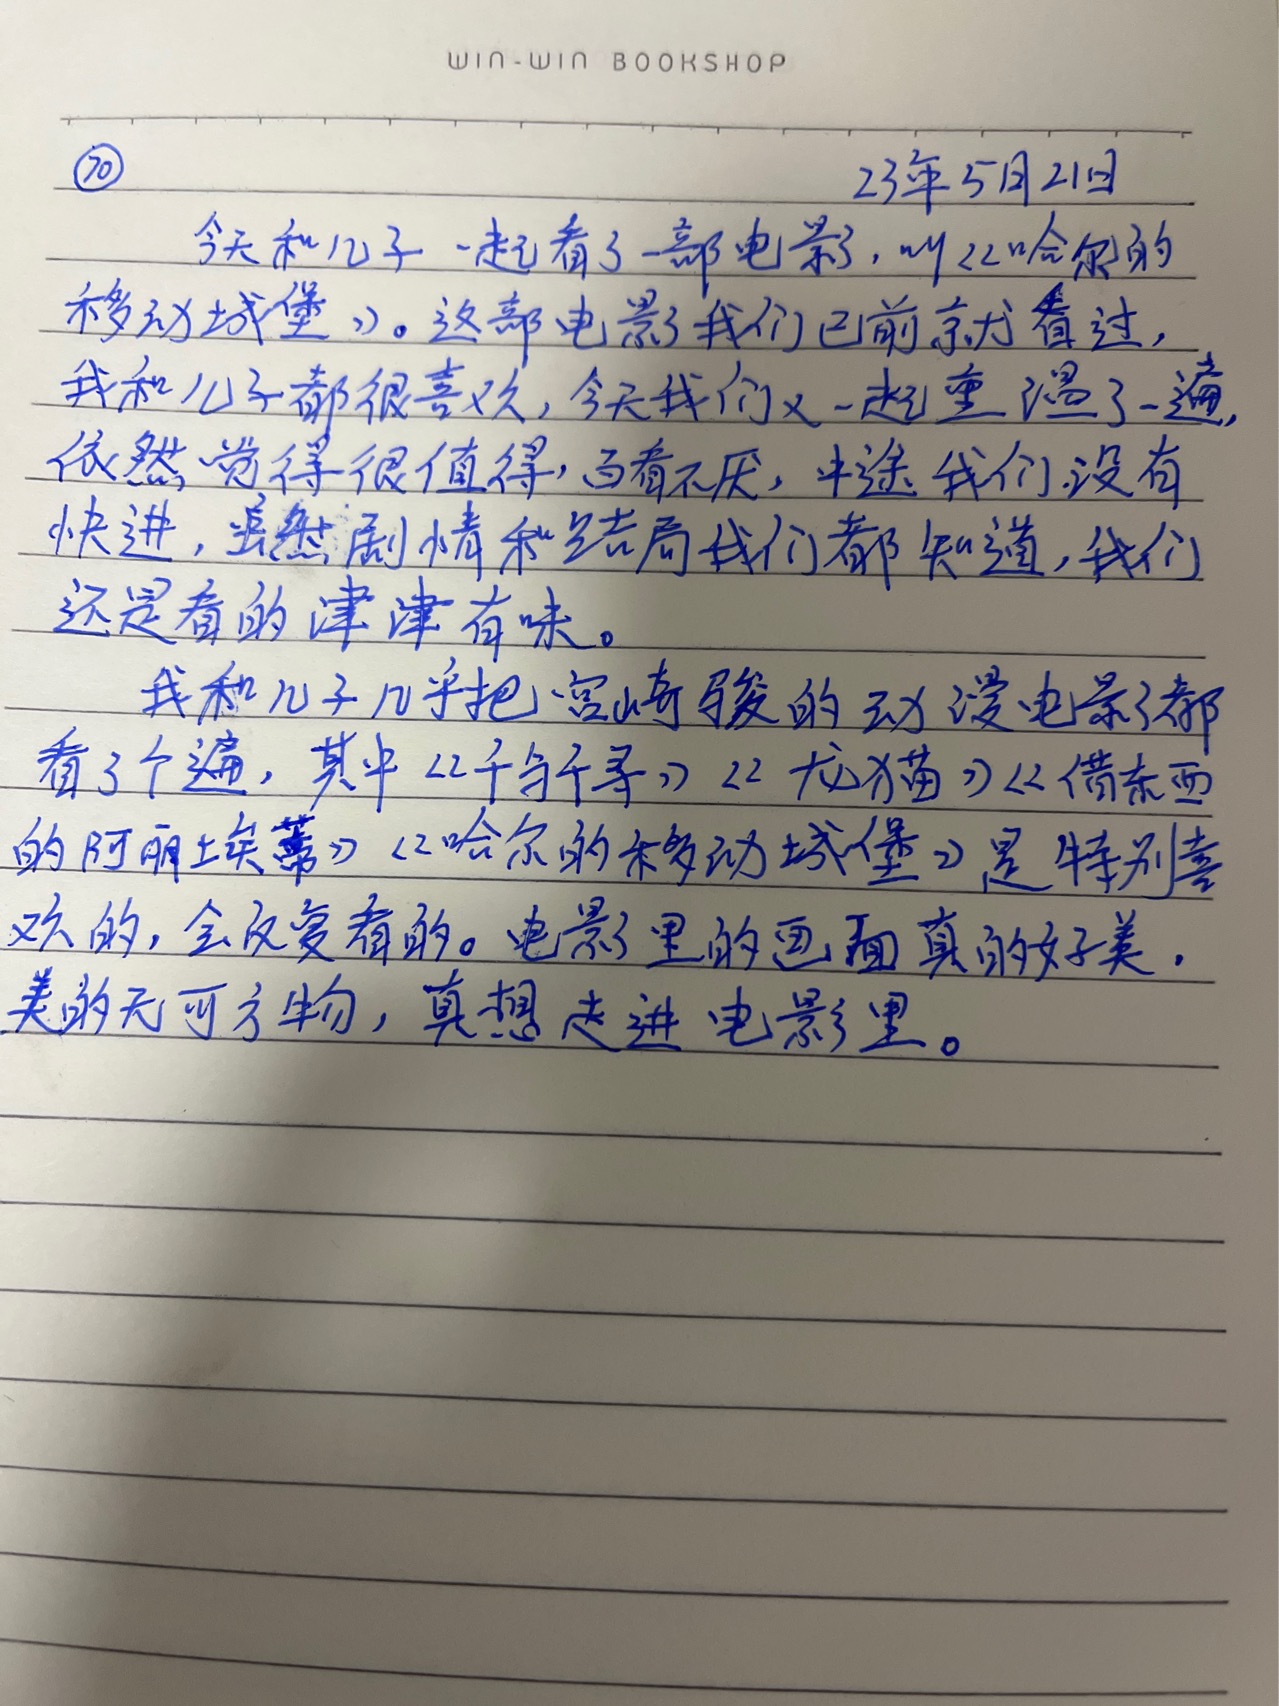 WIN-WIN BOOKSHOP
70 23年5月21日
今天和儿子一起看了一部电影,叫《哈尔的
移动城堡》。这部电影我们已前就看过,
我和儿子都很喜欢,今天我们又一起重温了一遍,
依然觉得很值得,百看不厌,中途我们没有
快进,虽然剧情和结局我们都知道,我们
还是看的津津有味。
我和儿子几乎把宫崎骏的动漫电影都
看了个遍,其中《千与千寻》《龙猫》《借东西
的阿丽埃蒂》《哈尔的移动城堡》是特别喜
欢的,会反复看的。电影里的画面真的好美,
美的无可方物,真想走进电影里。